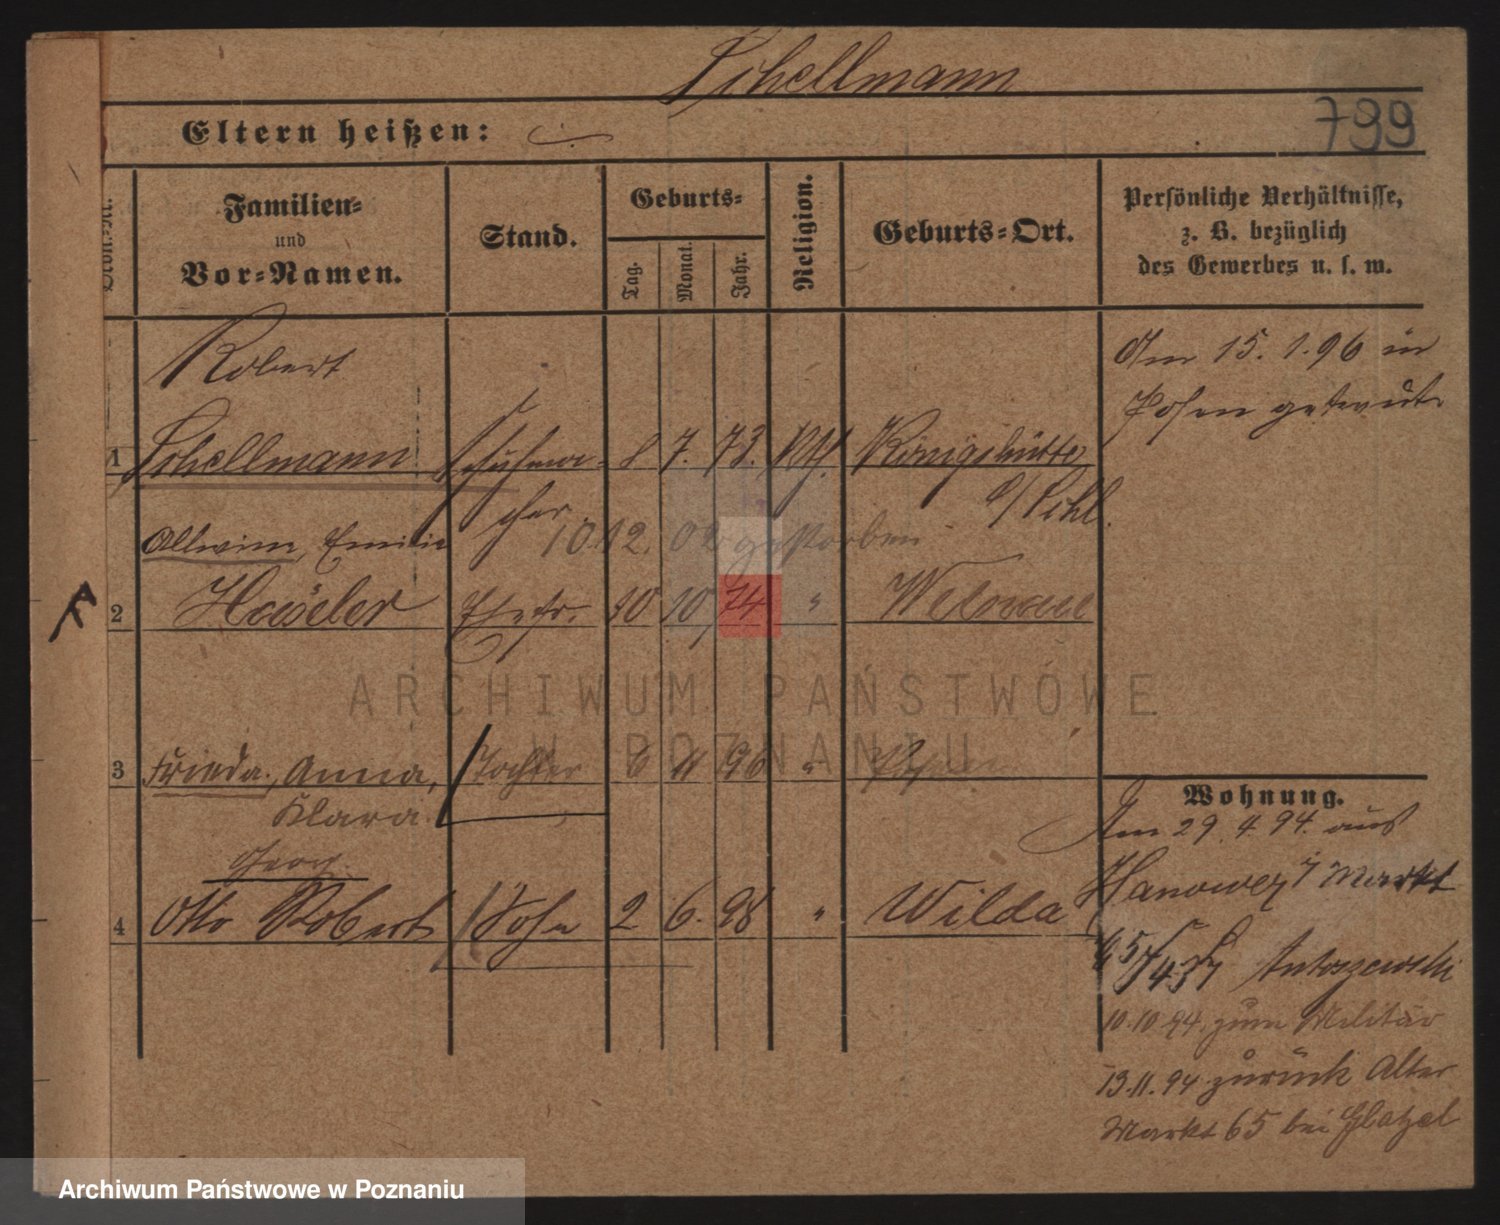 Schellmann
Eltern heißen:
799
Familien=
und
Vor=Namen.
Stand.
Geburts=
Tag.
Monat.
Jahr.
Religion.
Geburts=Ort.
Persönliche Verhältnisse,
z. B. bezüglich
des Gewerbes u. s. w.
Robert
1 Schellmann Schuhma= 8 7. 73. Königshütte
cher
Allwine, Emilie 10.12. 02 gestorben
2 Haseler Ehefr. 10 10 74 "
3 Frieda, Anna, Tochter 96 " Posen
Klara
Georg
4 Otto Robert Sohn 2 6. 98 " Wilda
Am 15. 1. 96 in
Posen getraut
Wohnung.
Am 29. 4. 94. aus
Hanower Markt
Antoszewski
10.10.94. zum Militär
13.11.94 zurück Alter
Markt 65 bei Glatzel
ARCHIWUM PAŃSTWOWE
W POZNANIU
Archiwum Państwowe w Poznaniu